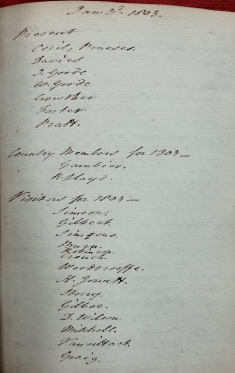 Jan. 3d. 1803.
Present
Cecil, Praeses.
Davies
J. Goode
W. Goode
Crowther
Foster
Pratt.
Country Members for 1803—
Gambier.
R. Lloyd.
Visitors for 1803—
Simeon.
Gilbert.
Simpson.
Burn.
Robinson
Crouch.
Woodrooffe.
H. Jowett.
Storry.
Gilbee.
D. Wilson.
Mitchell.
Vansittart.
Craig.